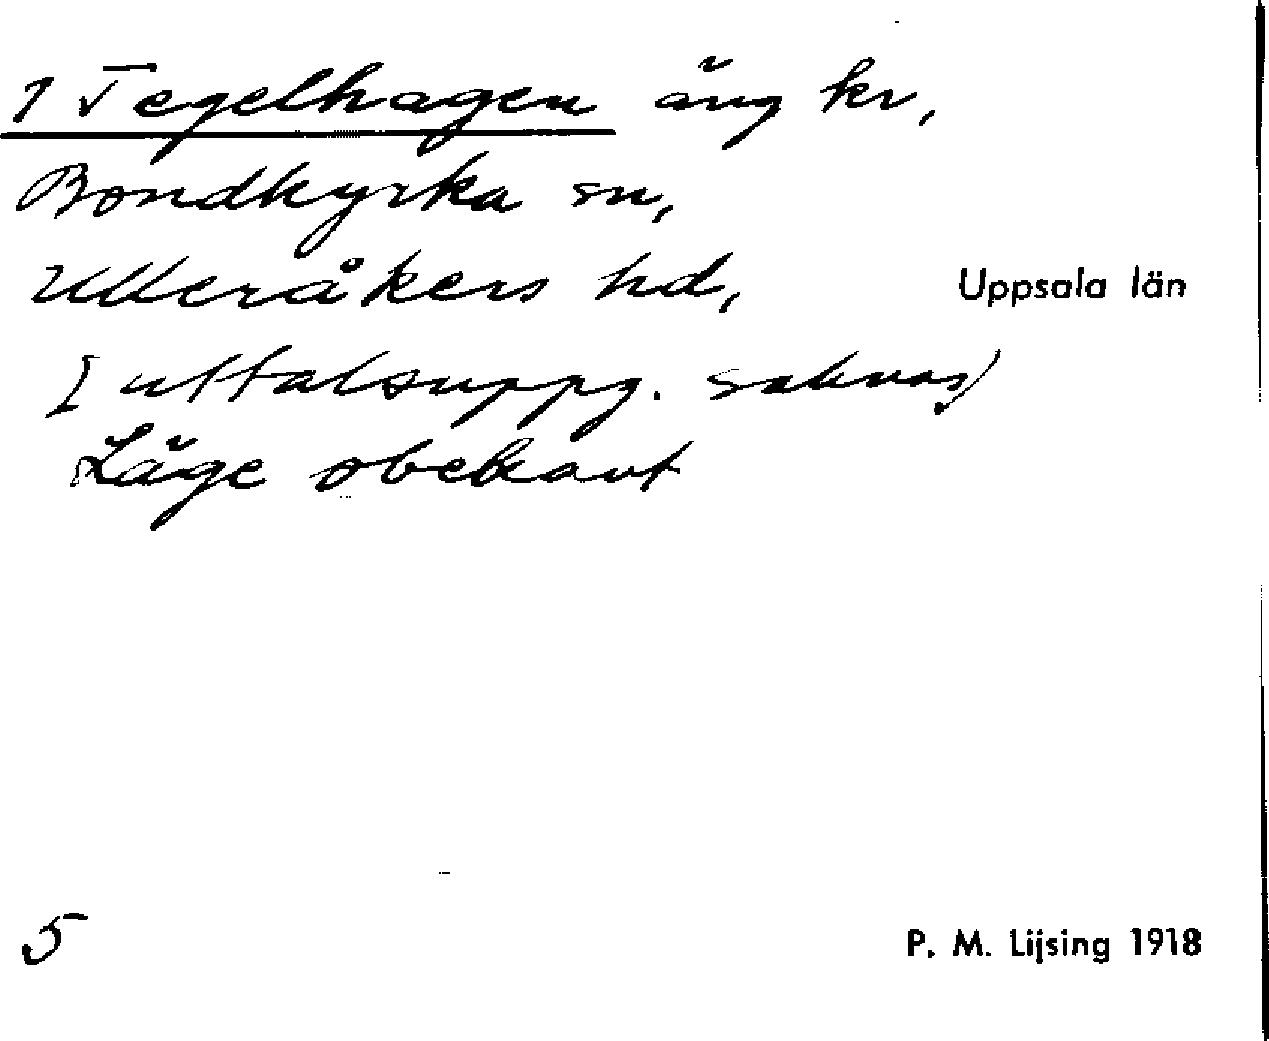 1 Tegelhagen äng kv,
Bondkyrka sn,
Ulleråkers hd, Uppsala län
[uttalsuppg. saknas]
Läge obekant
5 P. M. Lijsing 1918